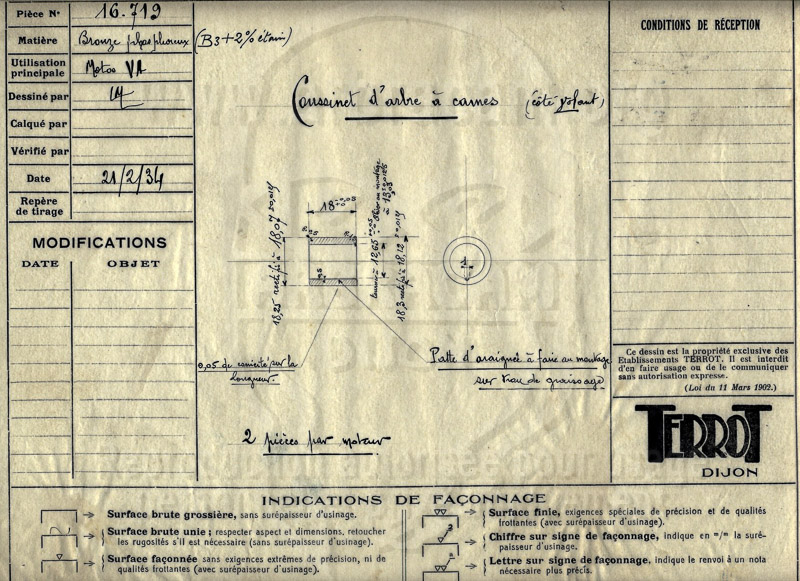 Pièce N° 16.719
Matière Bronze phosphoreux (B3+2% étain)
Utilisation principale Motos VA
Dessiné par
Calqué par
Vérifié par
Date 21/2/34
Repère de tirage
MODIFICATIONS
DATE OBJET
Coussinet d'arbre à cames (côté volant)
18
18,25 rectifié à 18,07
18,3 rectifié à 18,12
0,05 de conicité sur la
longueur.
Patte d'araignée à faire au montage
sur trou de graissage
2 pièces par moteur
CONDITIONS DE RÉCEPTION
Ce dessin est la propriété exclusive des
Etablissements TERROT. Il est interdit
d'en faire usage ou de le communiquer
sans autorisation expresse.
(Loi du 11 Mars 1902.)
TERROT
DIJON
INDICATIONS DE FAÇONNAGE
Surface brute grossière, sans surépaisseur d'usinage.
Surface brute unie : respecter aspect et dimensions, retoucher
les rugosités s'il est nécessaire (sans surépaisseur d'usinage).
Surface façonnée sans exigences extrêmes de précision, ni de
qualités frottantes (avec surépaisseur d'usinage).
Surface finie, exigences spéciales de précision et de qualités
frottantes (avec surépaisseur d'usinage).
Chiffre sur signe de façonnage, indique en m/m la suré-
paisseur d'usinage.
Lettre sur signe de façonnage, indique le renvoi à un nota
nécessaire plus précis.